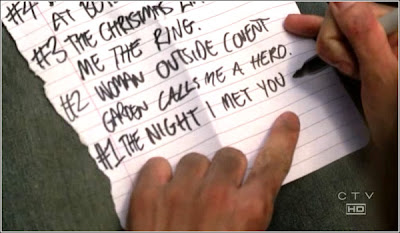 #4
AT
#3 THE CHRISTMAS
ME THE RING.
#2 WOMAN OUTSIDE COVENT
GARDEN CALLS ME A HERO.
#1 THE NIGHT I MET YOU
CTV
HD